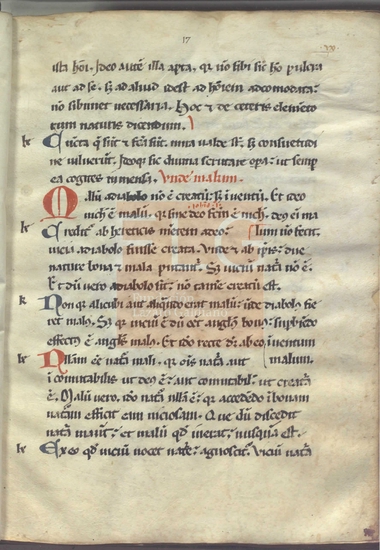 17
illa hoi. Ideo aute illa apta. qr no sibi sic ho pulcra
aut ad se. sz ad aliud idest ad hoiem adcomodata:
no sibimet necessaria. Hoc & de ceteris elemeto
rum naturis dicendum.
Cuncta q sut & fca sut. mira valde st. sz consuetudi
ne viluerunt. Ideoqz sic divina scrutare opa: ut semp
ea cogites inmensa. Unde malum.
Malu a diabolo no e creatu: sz i ventu. Et ideo
nich e malu. qr sine deo fcm e nich. deus ei ma
Creditur ab hereticis mentem a deo: lum no fecit.
vicia a diabolo fuisse creata. Unde & ab ipsis due
nature bona & mala putantur. Sz viciu natura no e.
Et du vero a diabolo sit: no tame creatu est.
Non qr alicubi aut aliquando erat malu: inde diabolus fie
ret malus. Sz qr viciu e du eet angelus bonus: supbiedo
effectus e angelus malus. Et ideo recte dr ab eo inventum
Nullam ee natura mali. qr ois natura aut malum.
i comutabilis ut deus e: aut comutabilis ut creatura
e. Malu vero ido natura nulla e: qr accededo i bonam
naturam efficit eam viciosam. Que du discedit
natura manet: et malu qd inerat: nusqua est.
Ex eo qd viciu nocet nature: agnoscitur. viciu natura